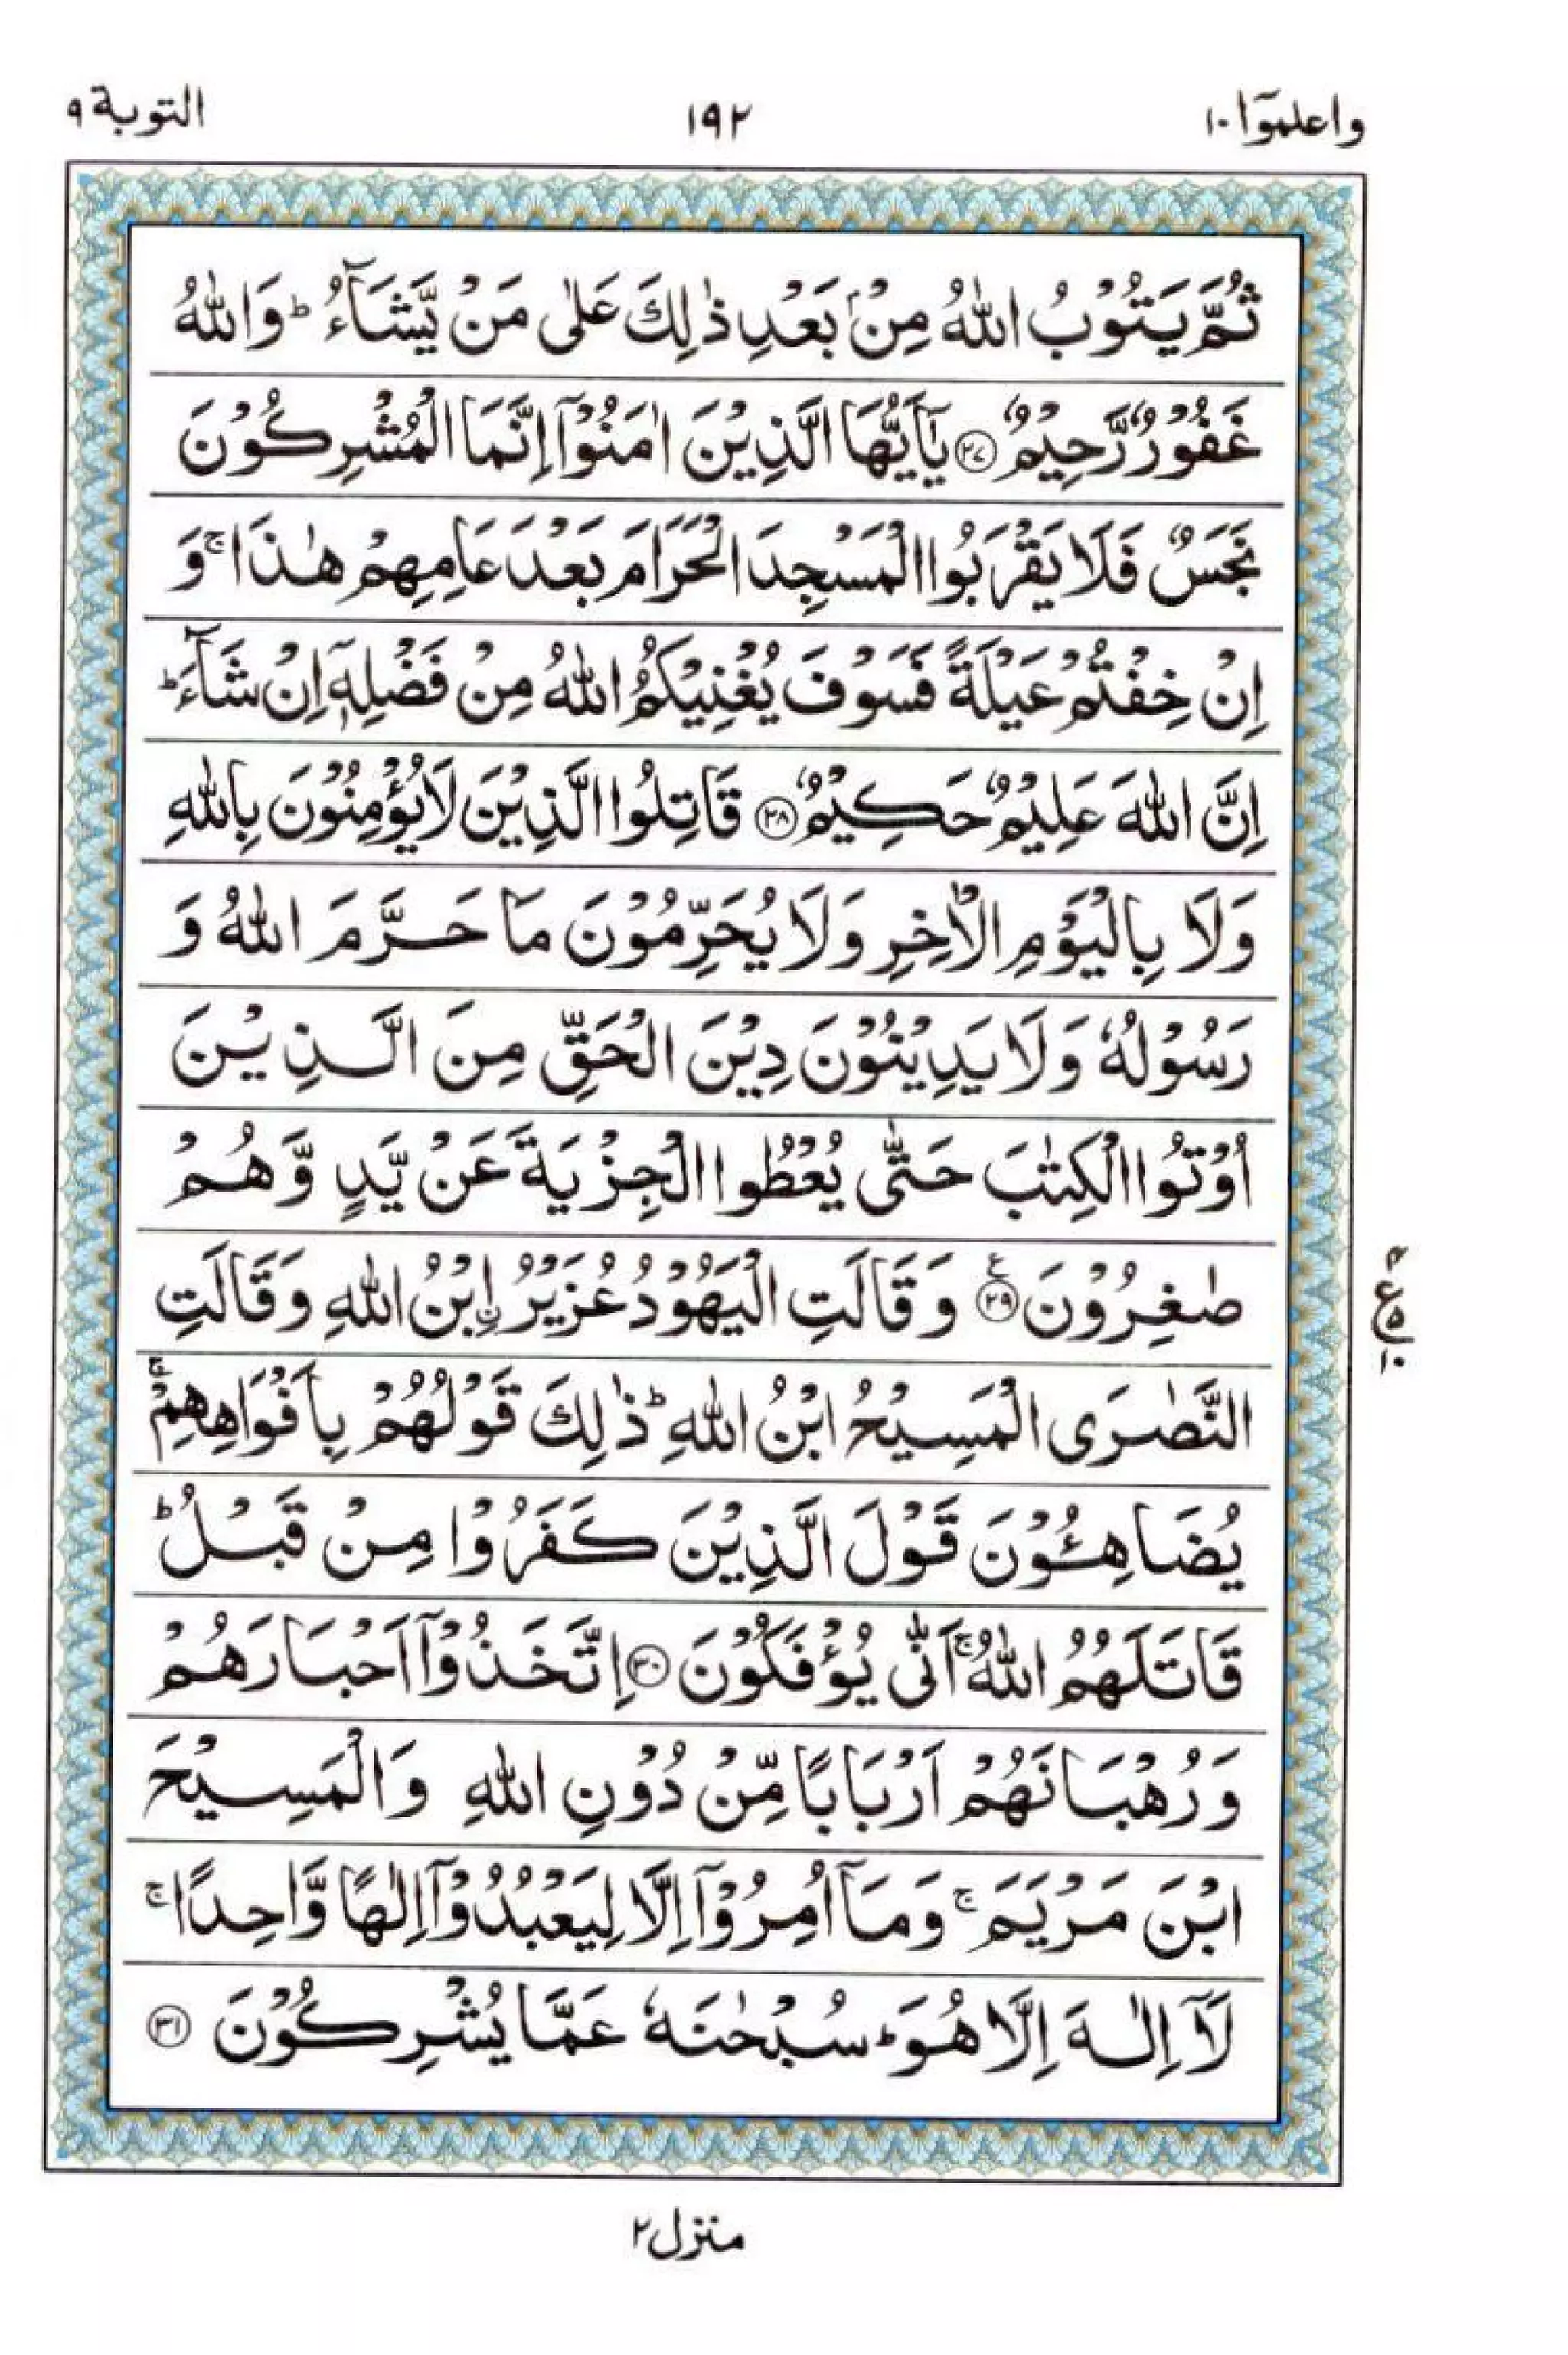 واعلموٓا ١٠
١٩٢
التوبة ٩
ثُمَّ يَتُوْبُ اللّٰهُ مِنْۢ بَعْدِ ذٰلِكَ عَلٰى مَنْ يَّشَآءُ ؕ وَاللّٰهُ
غَفُوْرٌ رَّحِيْمٌ ﴿۲۷﴾ يٰۤاَيُّهَا الَّذِيْنَ اٰمَنُوْۤا اِنَّمَا الْمُشْرِكُوْنَ
نَجَسٌ فَلَا يَقْرَبُوا الْمَسْجِدَ الْحَرَامَ بَعْدَ عَامِهِمْ هٰذَا ۚ وَ
اِنْ خِفْتُمْ عَيْلَةً فَسَوْفَ يُغْنِيْكُمُ اللّٰهُ مِنْ فَضْلِهٖۤ اِنْ شَآءَ ؕ
اِنَّ اللّٰهَ عَلِيْمٌ حَكِيْمٌ ﴿۲۸﴾ قَاتِلُوا الَّذِيْنَ لَا يُؤْمِنُوْنَ بِاللّٰهِ
وَلَا بِالْيَوْمِ الْاٰخِرِ وَلَا يُحَرِّمُوْنَ مَا حَرَّمَ اللّٰهُ وَ
رَسُوْلُهٗ وَلَا يَدِيْنُوْنَ دِيْنَ الْحَقِّ مِنَ الَّذِيْنَ
اُوْتُوا الْكِتٰبَ حَتّٰى يُعْطُوا الْجِزْيَةَ عَنْ يَّدٍ وَّهُمْ
صٰغِرُوْنَ ﴿۲۹﴾ ع وَقَالَتِ الْيَهُوْدُ عُزَيْرُ ۨ ابْنُ اللّٰهِ وَقَالَتِ
٩ ع ٥ ١٠
النَّصٰرَى الْمَسِيْحُ ابْنُ اللّٰهِ ؕ ذٰلِكَ قَوْلُهُمْ بِاَفْوَاهِهِمْ ۚ
يُضَاهِـُٔوْنَ قَوْلَ الَّذِيْنَ كَفَرُوْا مِنْ قَبْلُ ؕ
قَاتَلَهُمُ اللّٰهُ ۚ اَنّٰى يُؤْفَكُوْنَ ﴿۳۰﴾ اِتَّخَذُوْۤا اَحْبَارَهُمْ
وَرُهْبَانَهُمْ اَرْبَابًا مِّنْ دُوْنِ اللّٰهِ وَالْمَسِيْحَ
ابْنَ مَرْيَمَ ۚ وَمَاۤ اُمِرُوْۤا اِلَّا لِيَعْبُدُوْۤا اِلٰهًا وَّاحِدًا ۚ
لَاۤ اِلٰهَ اِلَّا هُوَ ؕ سُبْحٰنَهٗ عَمَّا يُشْرِكُوْنَ ﴿۳۱﴾
منزل ٢